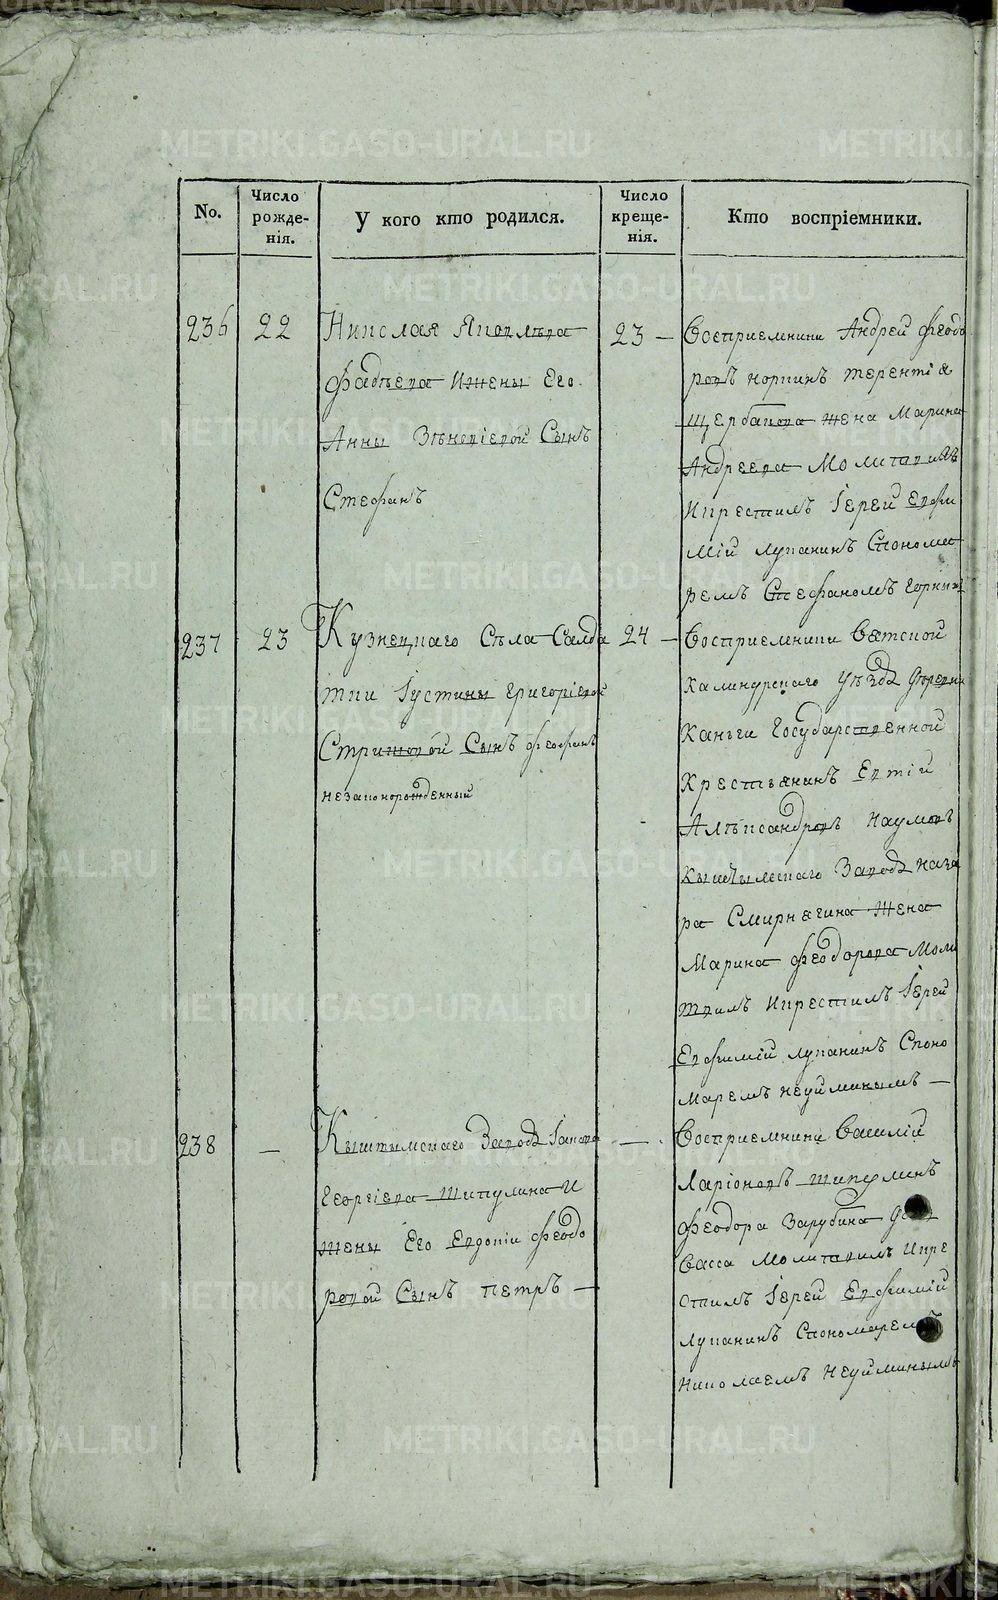 No.
Число рожде-нія.
У кого кто родился.
Число креще-нія.
Кто воспріемники.
236
22
Николая Яковлева
Фадѣева иЖены Его
Анны Зѣновіевой Сынъ
Стефанъ
23 —
Восприемники Андрей Феодо
ровъ коркинъ терентія
Щербакова жена Марина
Андреева Молитвилъ
Икрестилъ Іерей Евфи
мій лупанинъ Спонома
ремъ Стефаномъ
237
23
Кузнецкаго Села Салда
тки Іустины Григоріевой
Стрижовой Сынъ Феофанъ
незаконорожденный
24 —
Восприемники Вятской
Уѣзда Деревни
Государственной
Крестьянинъ Евтій
Алѣксандровъ Наумовъ
Кыштымскаго Завода наза
ра Смирнягина Жена
Марина Феодорова Моли
твилъ Икрестилъ Іерей
Евфимій лупанинъ Споно
Маремъ неуйминымъ —
238
—
Кыштымскаго Завода Іакова
Георгіева Шипулина И
жены Его Евдокіи Феодо
ровой Сынъ петръ —
—
Восприемники Василій
Ларіоновъ шипулинъ
Феодора Зарубина
Васса Молитвилъ Икре
стилъ Іерей Евфимій
лупанинъ Спономаремъ
Николаемъ Неуйминымъ
METRIKI.GASO-URAL.RU